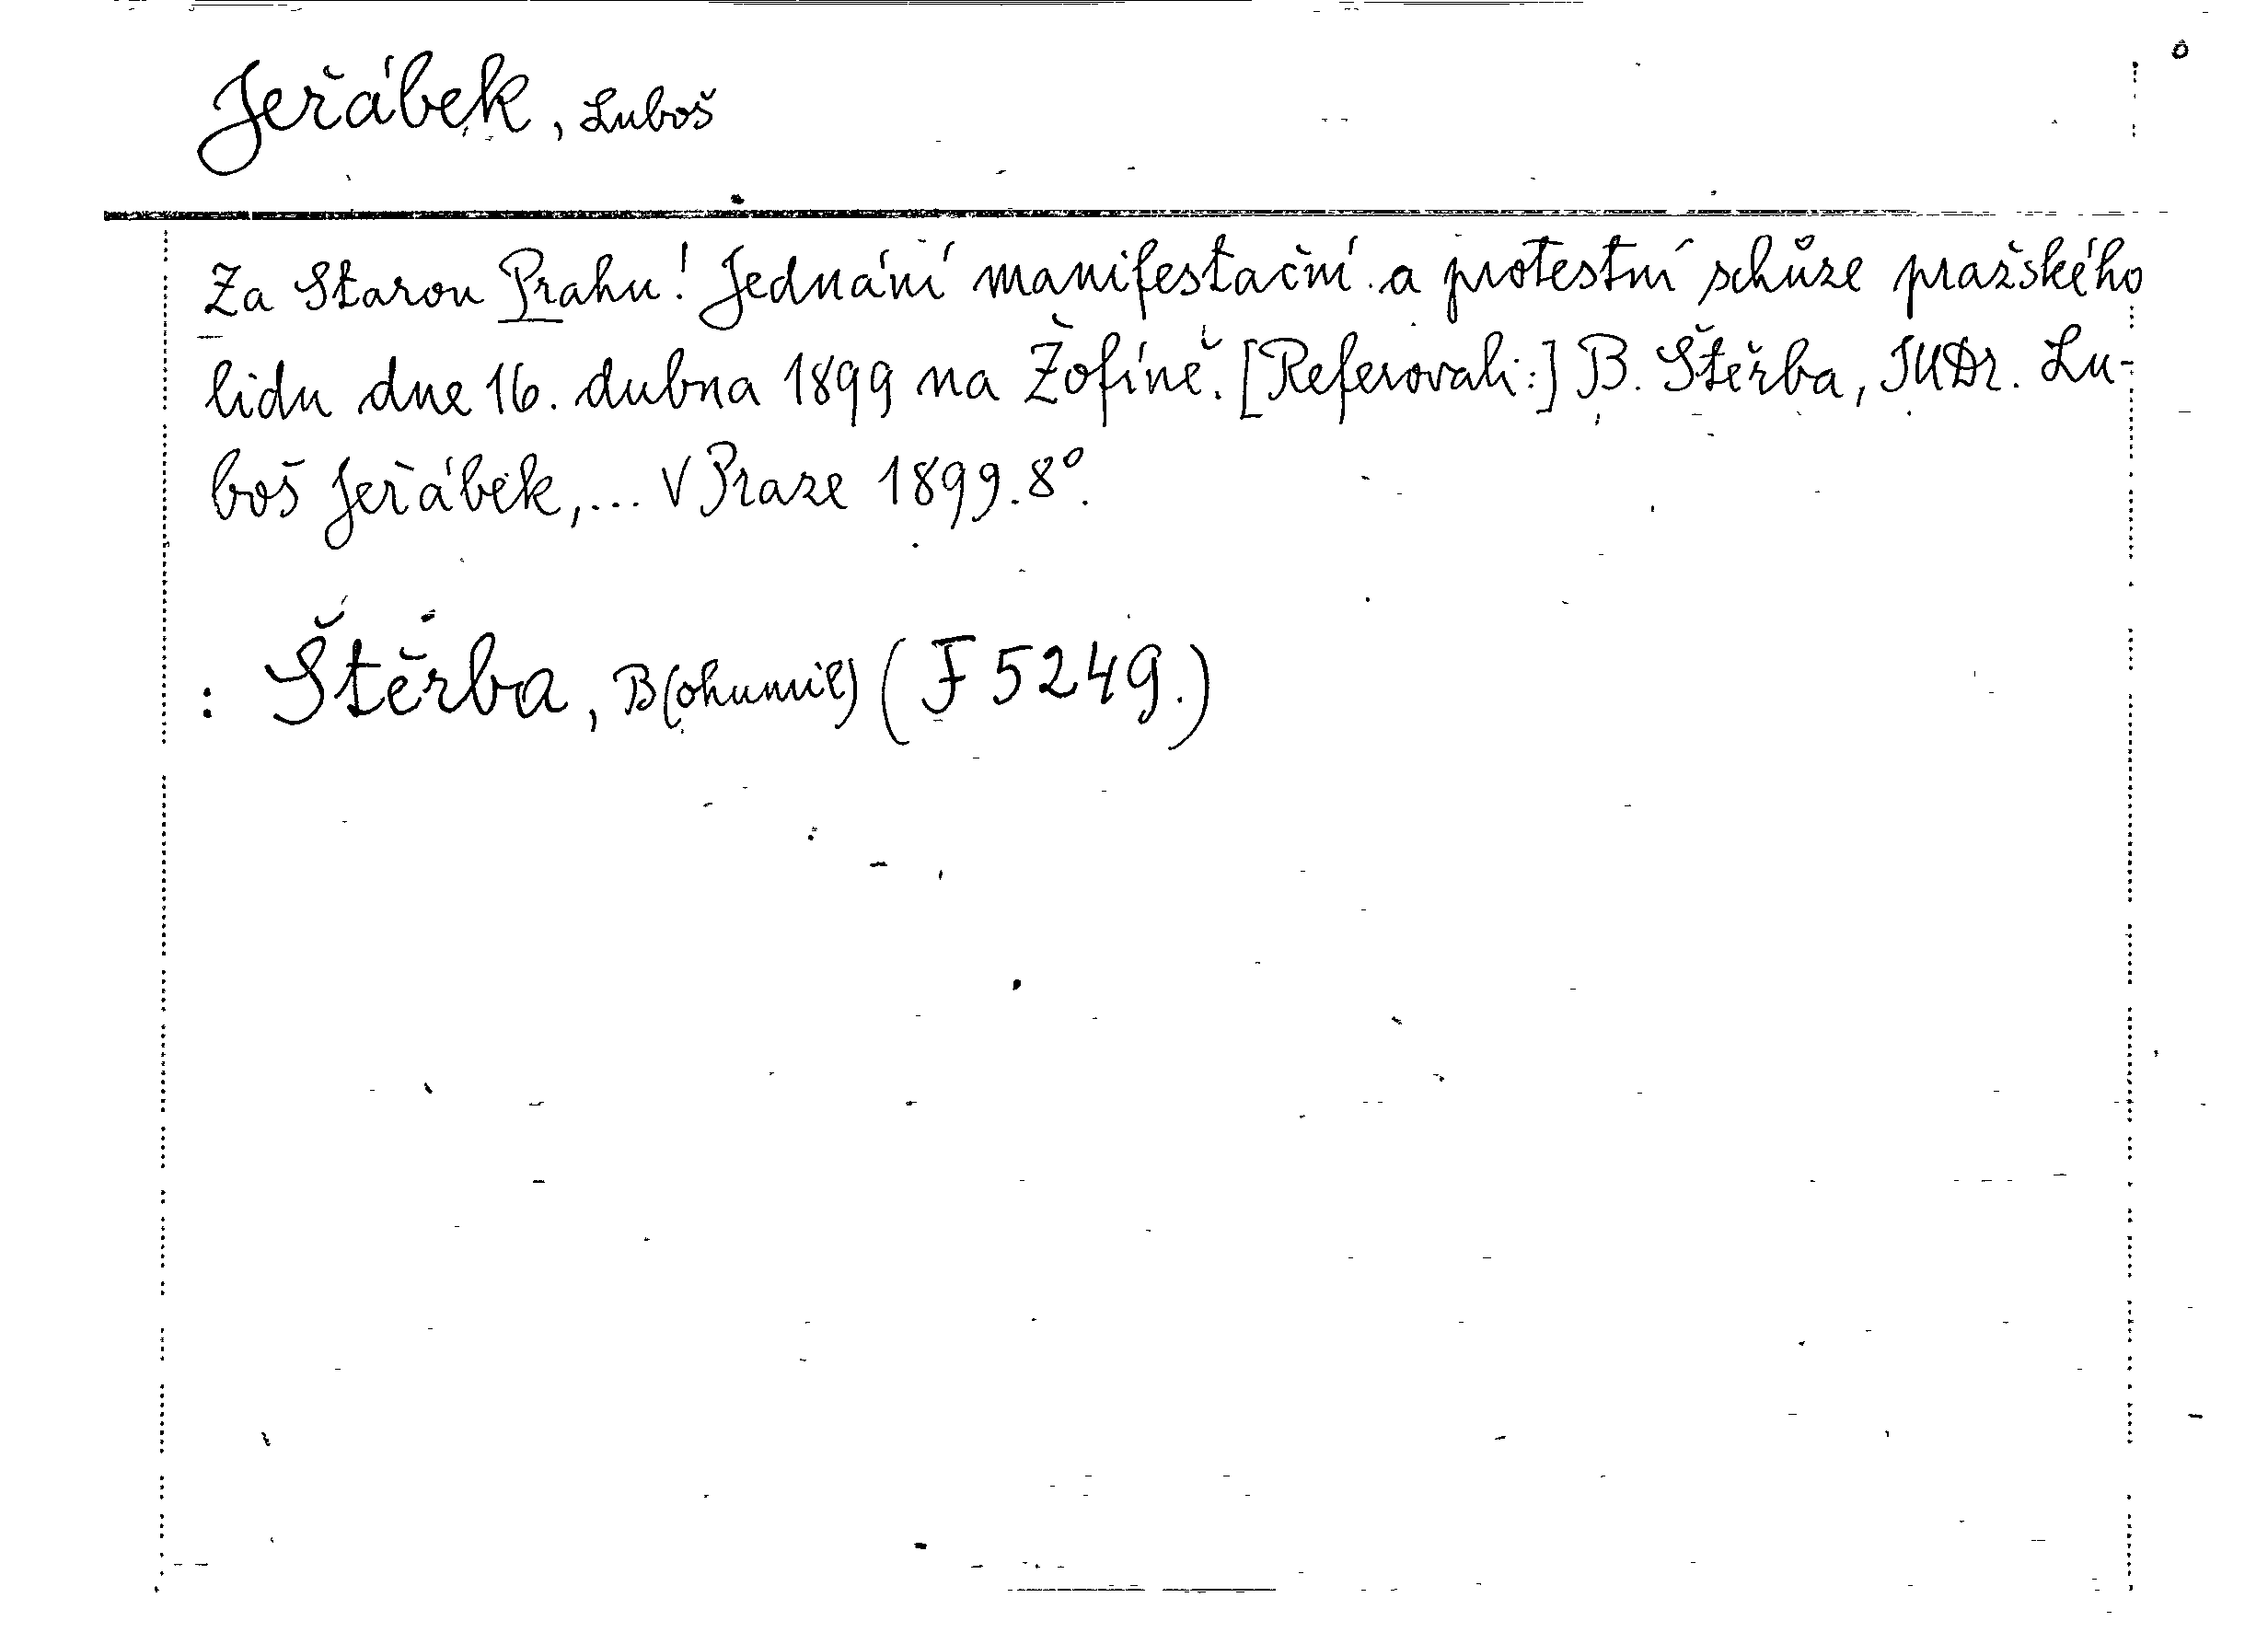 Jeřábek, Luboš
Za Starou Prahu! Jednání manifestační a protestní schůze pražského
lidu dne 16. dubna 1899 na Žofíně. [Referovali:] B. Štěrba, JUDr. Lu-
boš Jeřábek,... V Praze 1899. 8°.
: Štěrba, B(ohumil) (F 5249.)